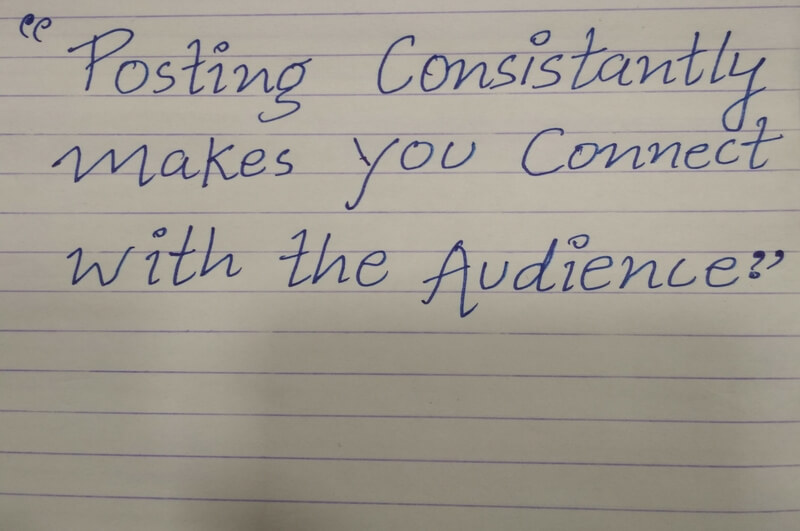 “Posting Consistantly
makes you Connect
with the Audience”